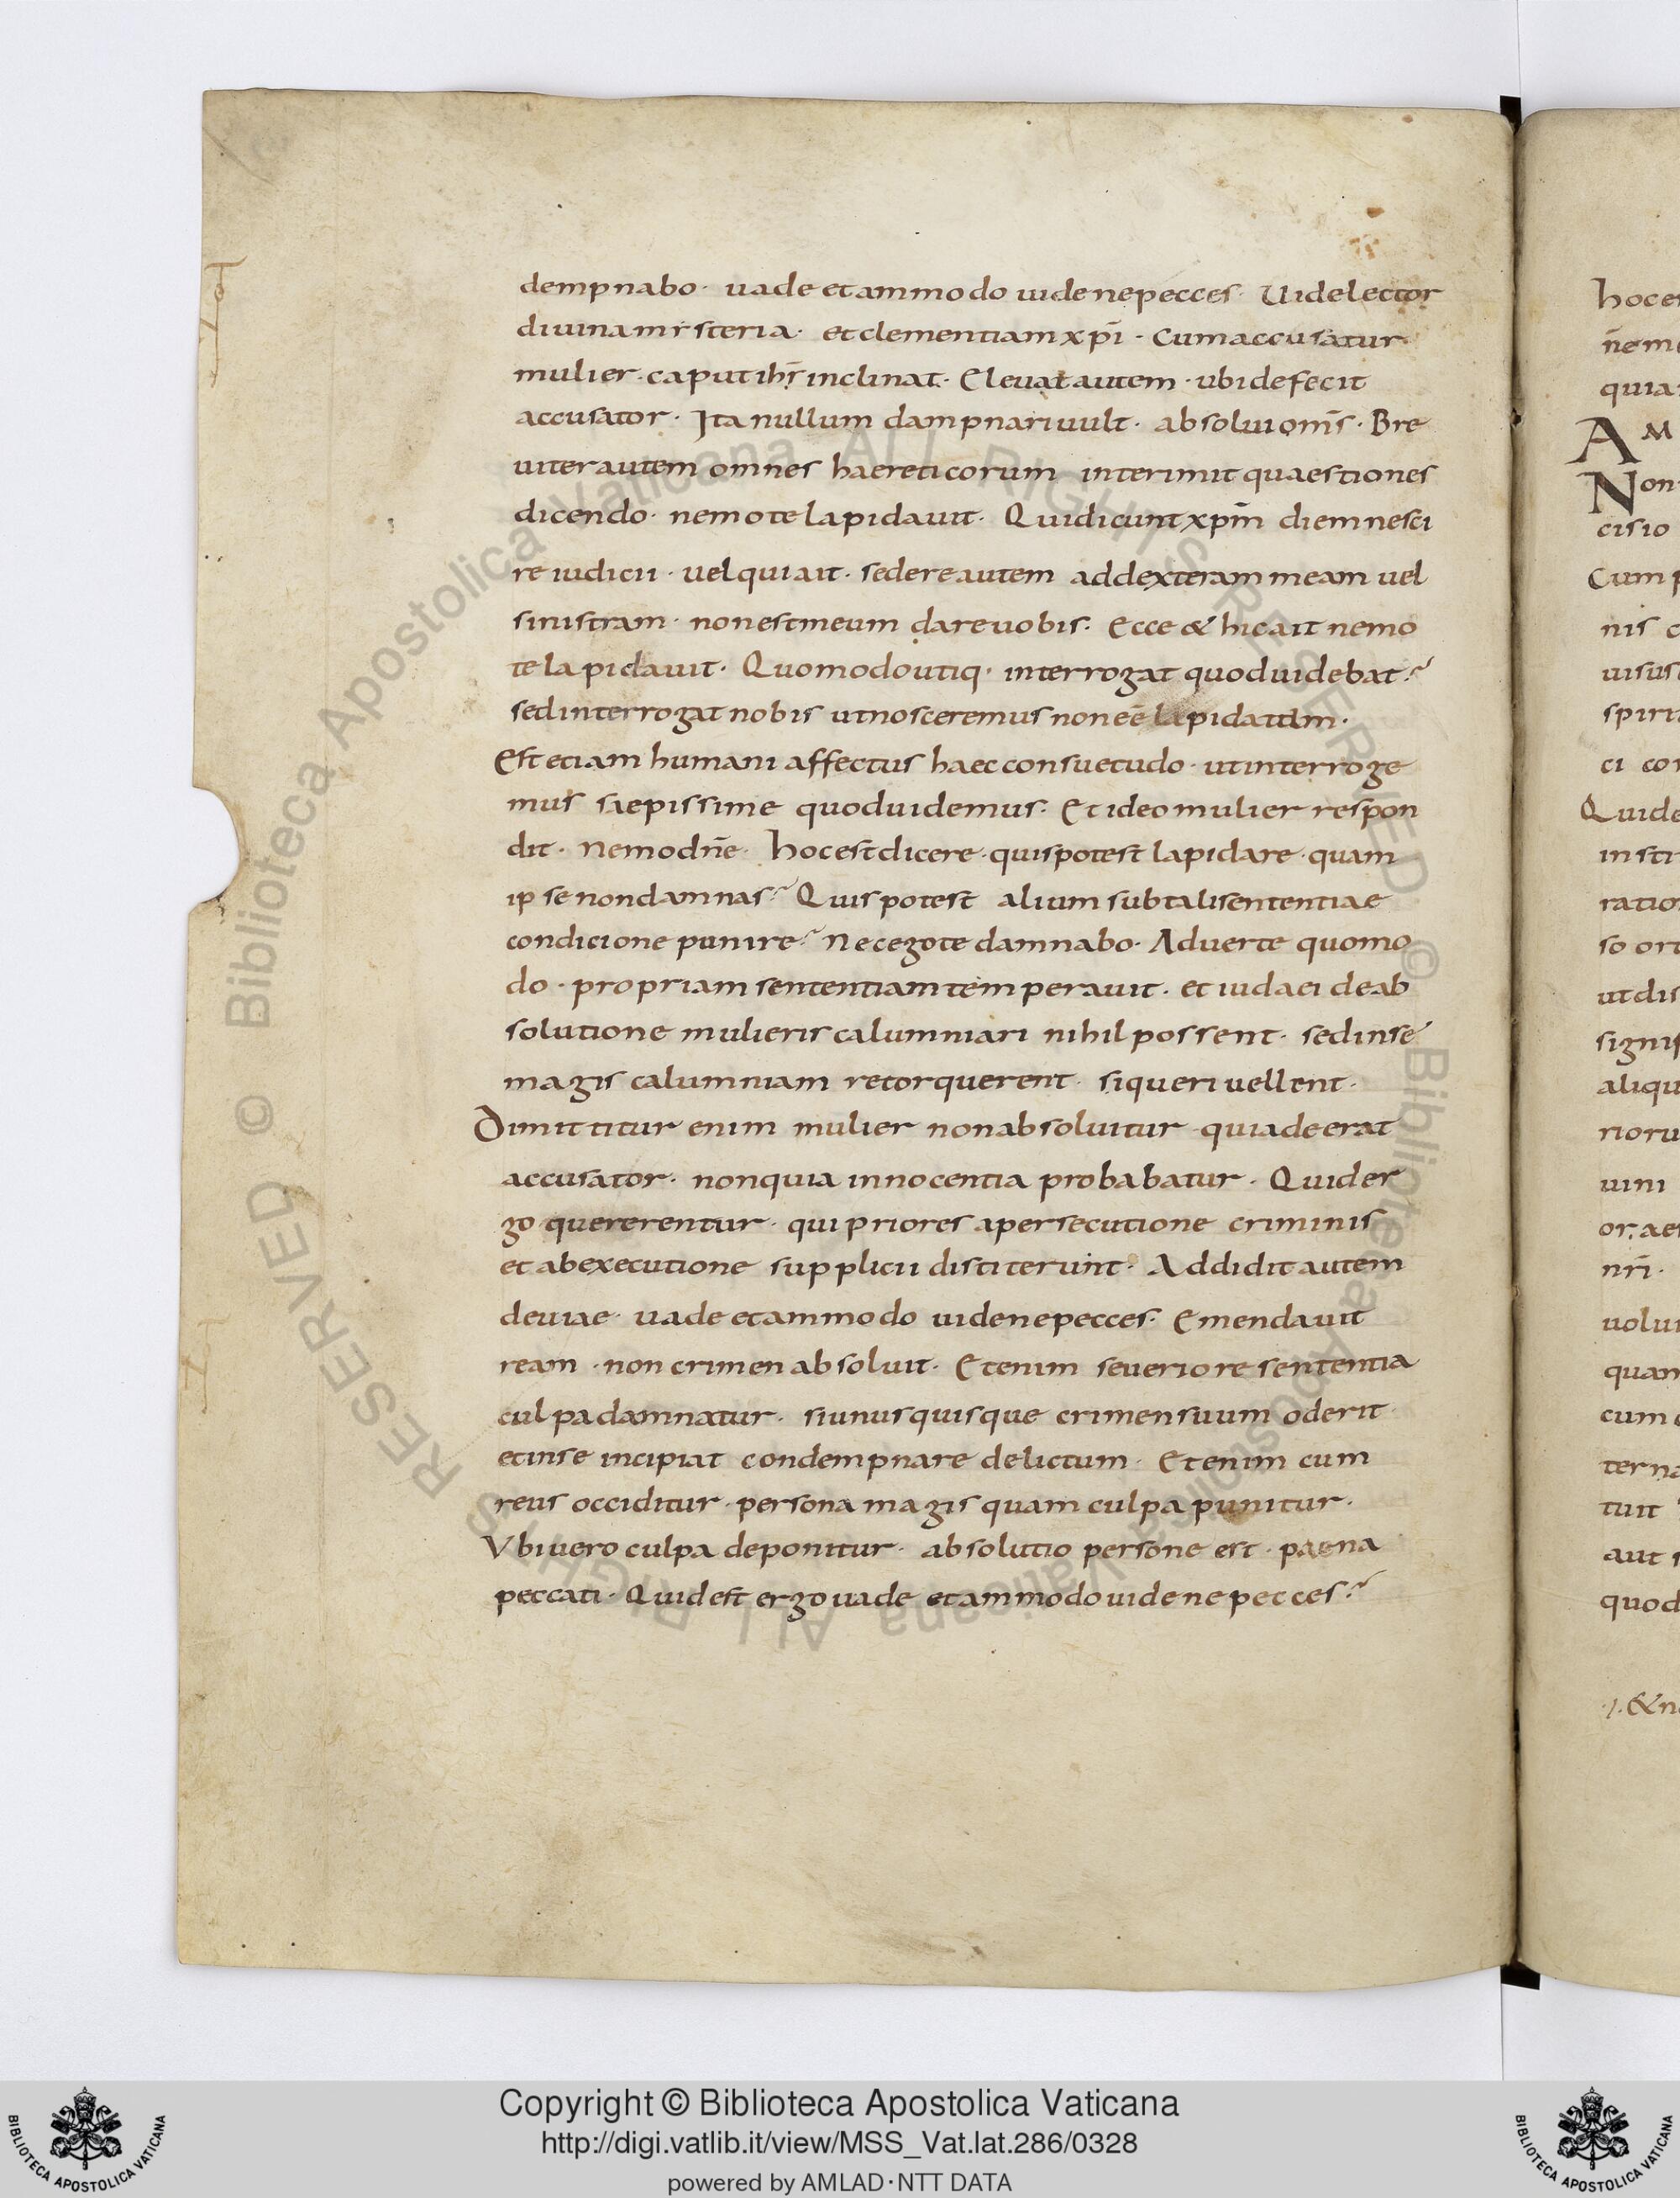 dempnabo· uade et ammodo uide ne pecces· Uide lector
diuina misteria· et clementiam xp̄i· cum accusatur
mulier· caput ih̄s inclinat· Eleuat autem· ubi defecit
accusator· Ita nullum dampnari uult· absolui om̄s· Bre
uiter autem omnes haereticorum interimit quaestiones
dicendo· nemo te lapidauit· Qui dicunt xp̄m diem nesci
re iudicii· uel qui ait· sedere autem ad dexteram meam uel
sinistram· non est meum dare uobis· Ecce & hic ait nemo
te lapidauit· Quomodo utiq· interrogat quod uidebat?
sed interrogat nobis ut nosceremus non eē lapidatam·
Est etiam humani affectus haec consuetudo· ut interroge
mus saepissime quod uidemus· Et ideo mulier respon
dit· Nemo dn̄e· hoc est dicere· quis potest lapidare· quam
ipse non damnas? Quis potest alium sub tali sententiae
condicione punire? Nec ego te damnabo· Aduerte quomo
do· propriam sententiam temperauit· et iudaei de ab
solutione mulieris calumniari nihil possent· sed in se
magis calumniam retorquerent· si queri uellent·
Dimittitur enim mulier non absoluitur· quia deerat
accusator· non quia innocentia probabatur· Quid er
go quererentur· qui priores a persecutione criminis
et ab executione supplicii distiterunt· Addidit autem
deuiae· uade et ammodo uide ne pecces· Emendauit
ream· non crimen absoluit· Etenim seueriore sententia
culpa damnatur· si unusquisque crimen suum oderit·
et in se incipiat condempnare delictum· Etenim cum
reus occiditur· persona magis quam culpa punitur·
Ubi uero culpa deponitur· absolutio persone est· paena
peccati· Quid est ergo uade et ammodo uide ne pecces?
Copyright © Biblioteca Apostolica Vaticana
http://digi.vatlib.it/view/MSS_Vat.lat.286/0328
powered by AMLAD·NTT DATA